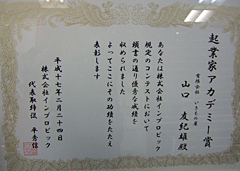 起業家アカデミー賞
有限会社 いきもの屋
山口 友紀雄殿
あなたは株式会社インプロビック
規定のコンテストにおいて
頭書の通り優秀な成績を
収められました
よってここにその功績をたたえ
表彰します
平成十七年二月二十四日
株式会社インプロビック
代表取締役 平秀信